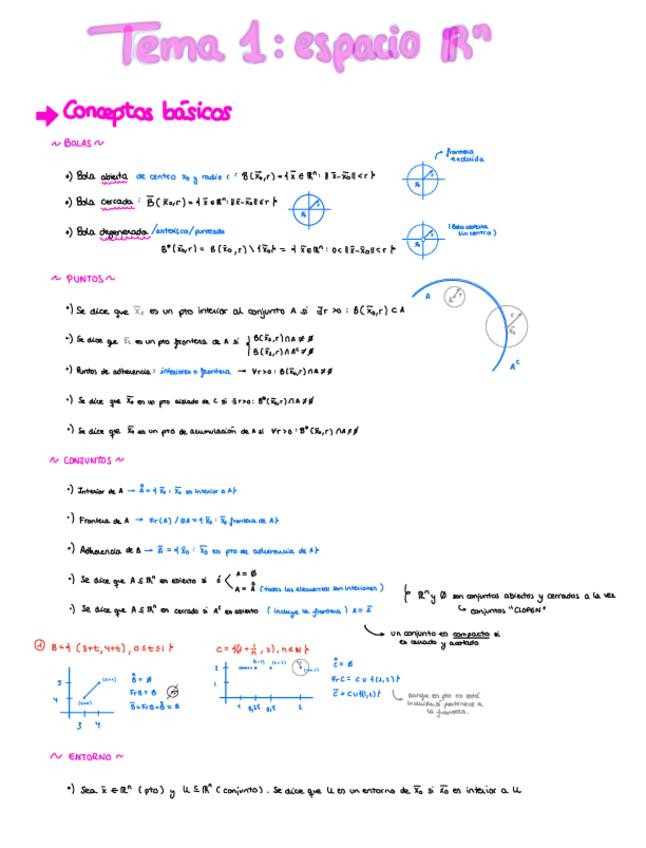 Tema 1: espacio ℝⁿ
→ Conceptos básicos
~ BOLAS ~
•) Bola abierta de centro x̄₀ y radio r : B(x̄₀,r) = { x̄ ∈ ℝⁿ: ‖x̄-x̄₀‖ < r }
frontera excluida
•) Bola cerrada : B̄(x̄₀,r) = { x̄ ∈ ℝⁿ: ‖x̄-x̄₀‖ ≤ r }
•) Bola degenerada /antérica/punteada
B*(x̄₀,r) = B(x̄₀,r) \ {x̄₀} = { x̄ ∈ ℝⁿ: 0 < ‖x̄-x̄₀‖ < r }
(Bola abierta sin centro)
~ PUNTOS ~
•) Se dice que x̄₀ es un pto interior al conjunto A si ∃r>0 : B(x̄₀,r) ⊂ A
•) Se dice que x̄₀ es un pto frontera de A si { B(x̄₀,r) ∩ A ≠ ∅
B(x̄₀,r) ∩ Aᶜ ≠ ∅
•) Puntos de adherencia : interiores + frontera → ∀r>0 : B(x̄₀,r) ∩ A ≠ ∅
•) Se dice que x̄₀ es un pto aislado de C si ∃r>0: B*(x̄₀,r) ∩ A = ∅
•) Se dice que x̄₀ es un pto de acumulación de A si ∀r>0 : B*(x̄₀,r) ∩ A ≠ ∅
A
Aᶜ
~ CONJUNTOS ~
•) Interior de A → Å = { x̄₀ : x̄₀ es interior a A }
•) Frontera de A → Fr(A) / ∂A = { x̄₀ : x̄₀ frontera de A }
•) Adherencia de A → Ā = { x̄₀ : x̄₀ es pto de adherencia de A }
•) Se dice que A ⊆ ℝⁿ es abierto si ó < A = ∅
A = Å (todos los elementos son interiores)
•) Se dice que A ⊆ ℝⁿ es cerrado si Aᶜ es abierto (incluye la frontera) A = Ā
ℝⁿ y ∅ son conjuntos abiertos y cerrados a la vez
↳ conjuntos "CLOPEN"
un conjunto es compacto si es cerrado y acotado
① B = { (3+t, 4+t), 0 ≤ t ≤ 1 }
5
4
3 4
B̊ = ∅
Fr B = B
B̄ = Fr B + B̊ = B
2
1
C̊ = ∅
Fr C = C ∪ {(1,2)}
C̄ = C ∪ {(1,2)}
aunque este pto no está incluido, sí pertenece a la frontera.
~ ENTORNO ~
•) Sea x̄ ∈ ℝⁿ (pto) y U ⊆ ℝⁿ (conjunto). Se dice que U es un entorno de x̄₀ si x̄₀ es interior a U